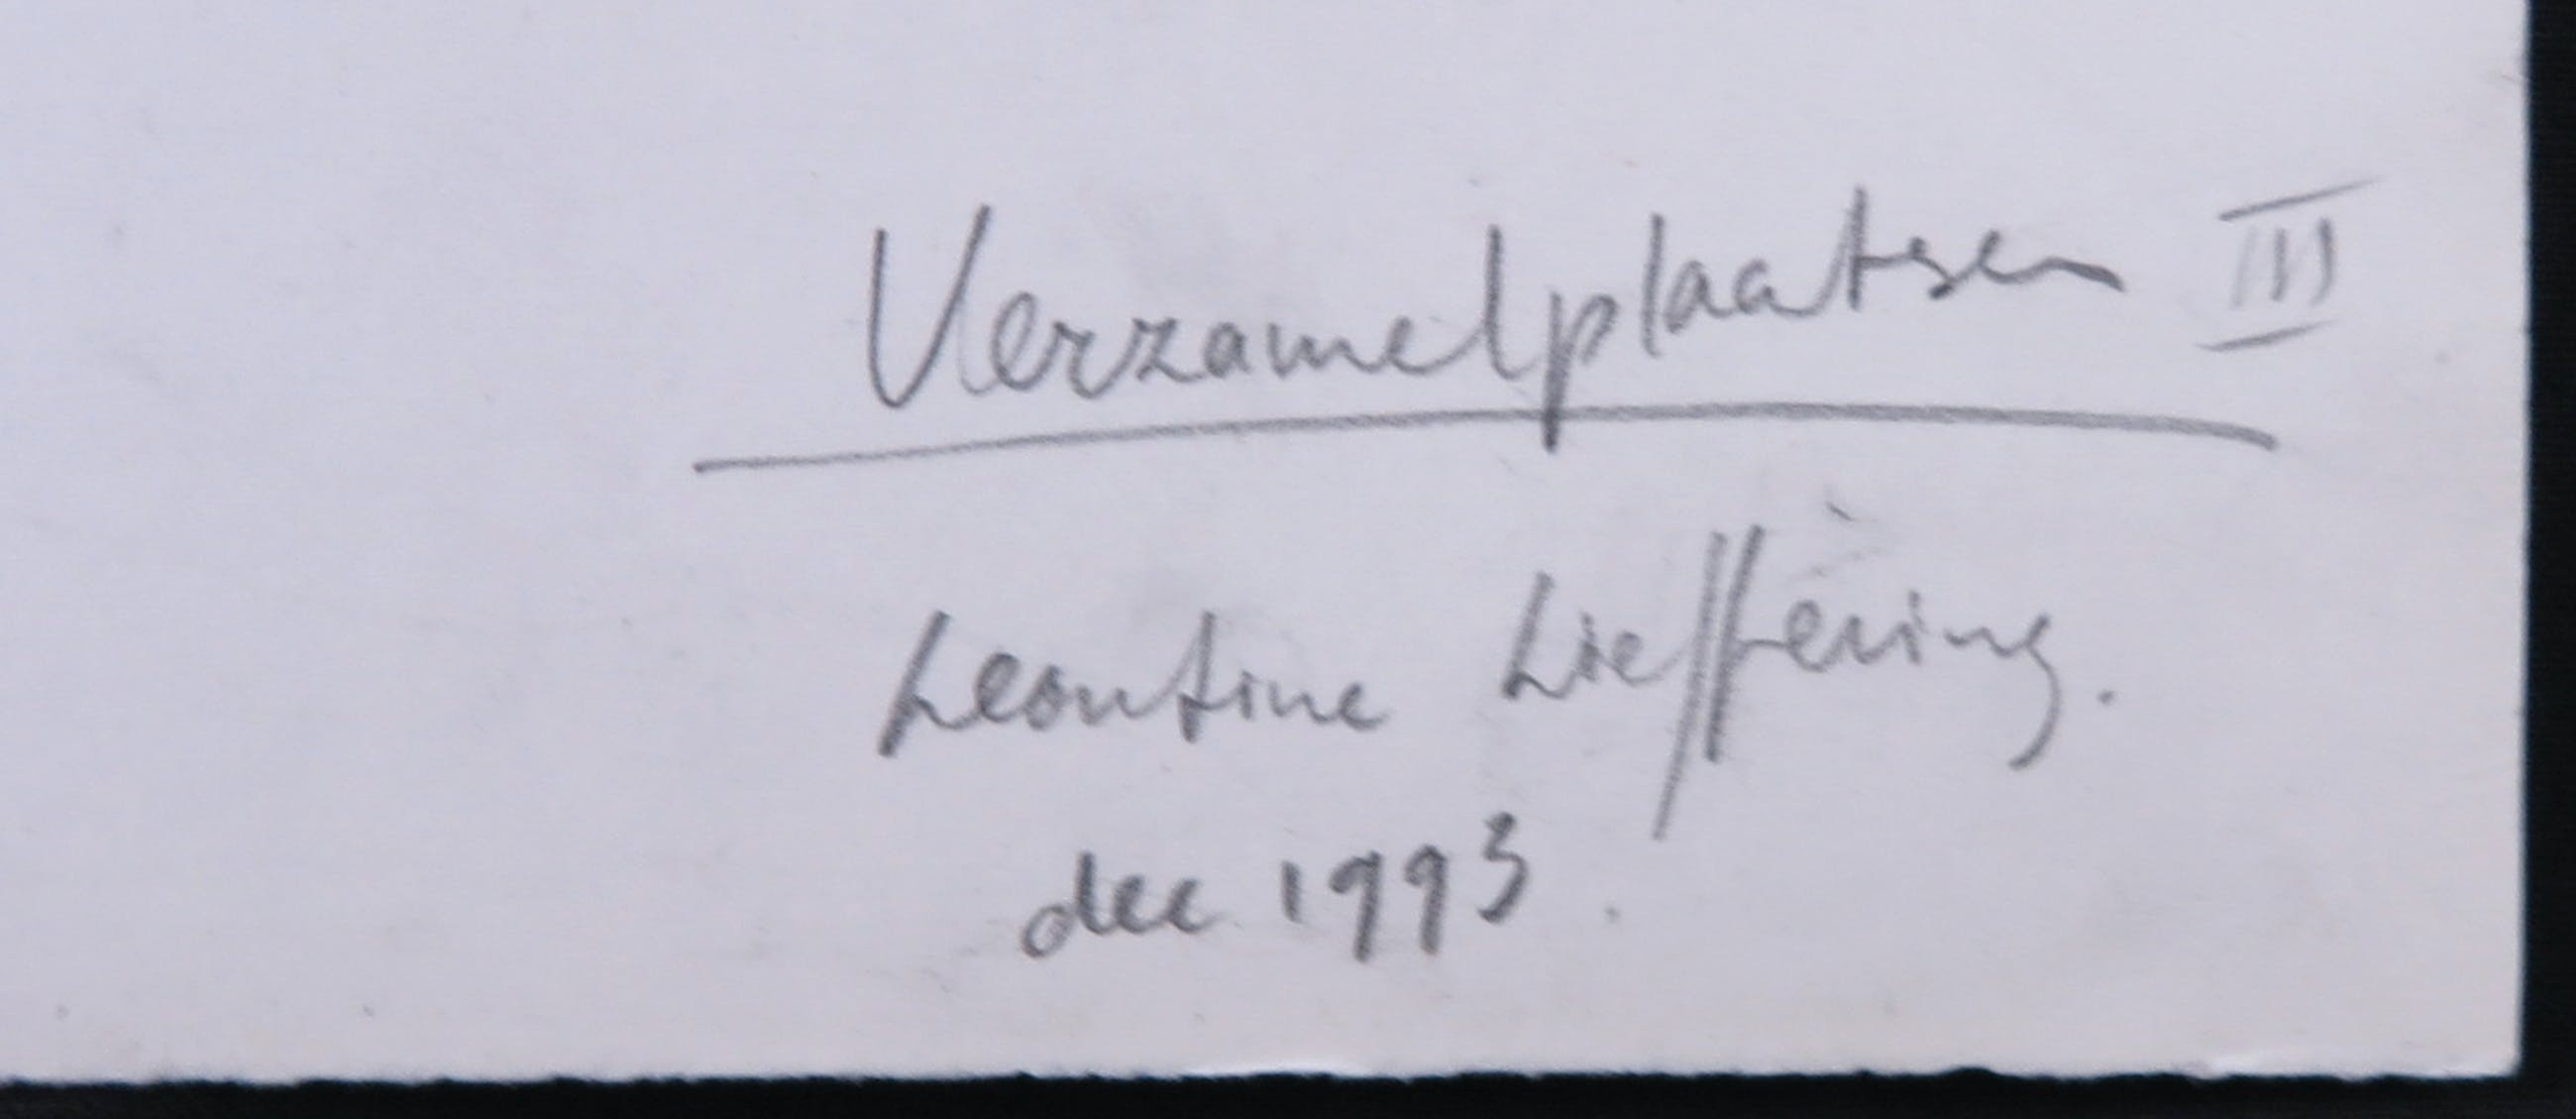 Verzamelplaatsen III
Leontine Lieffering.
dec 1993.